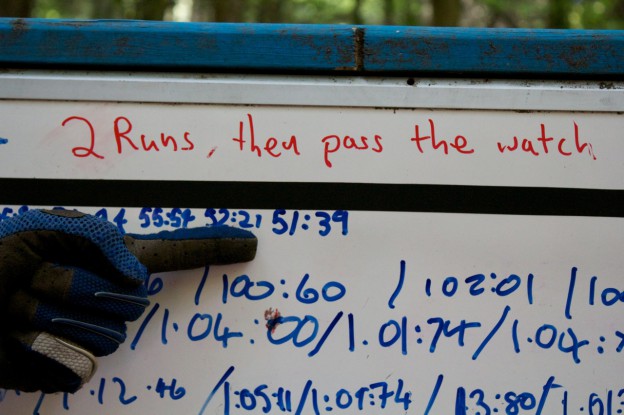 2 Runs, then pass the watch
55:54 52:21 51:39
/100:60 /102:01 /100
/1.04:00/1.01:74/1.04:
1.12.46 /1:05:11/1:01:74 /13:80/1.01